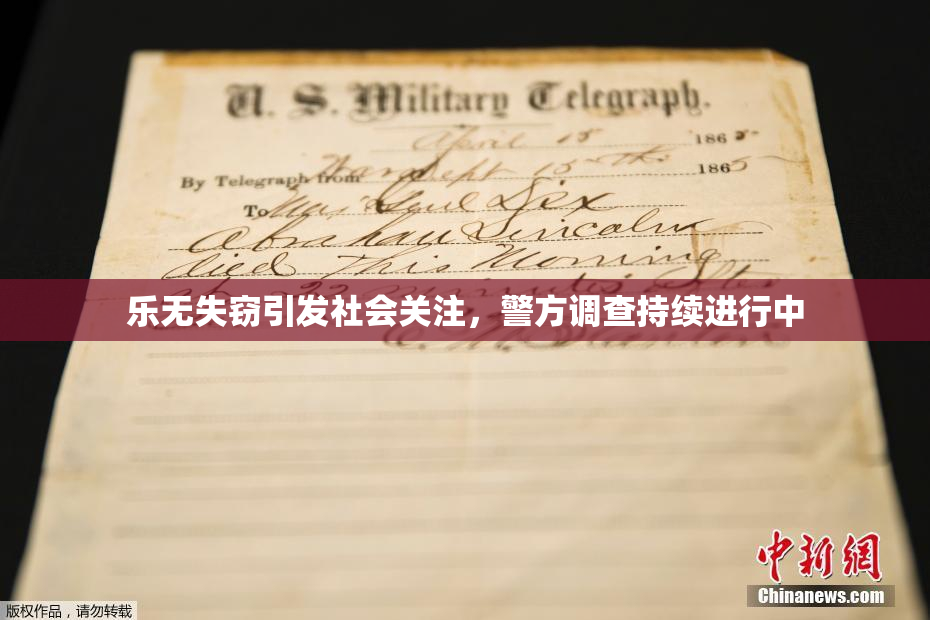 U. S. Military Telegraph.
April 15 1865
By Telegraph from War Dept 15th 1865
To Maj Genl Dix
Abraham Lincoln
died This Morning
at 22 minutes after
乐无失窃引发社会关注，警方调查持续进行中
E. M. Stanton
中新网
Chinanews.com
版权作品，请勿转载